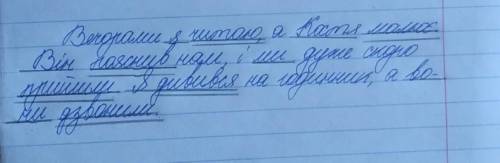 Вечорами я читаю, а Костя малює.
Він позвонив нам, і ми дуже скоро
прийшли. Я дивився на годинник, а во-
ни дзвонили.